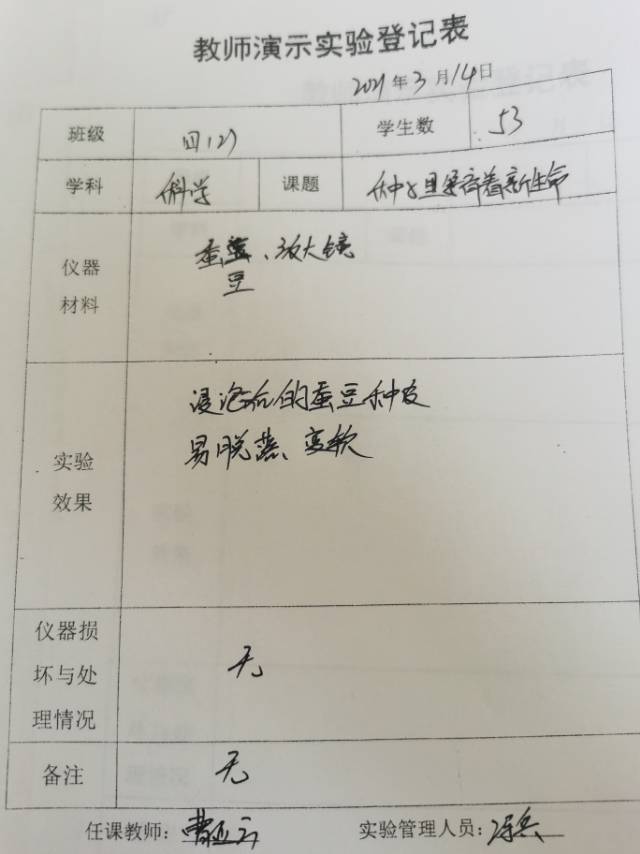 教师演示实验登记表
2021年3月14日
班级 四(2) 学生数 53
学科 科学 课题 种子里孕育着新生命
仪器材料 蚕豆、放大镜
实验效果 浸泡后的蚕豆种皮
易脱落、变软
仪器损坏与处理情况 无
备注 无
任课教师: 曹正云 实验管理人员: